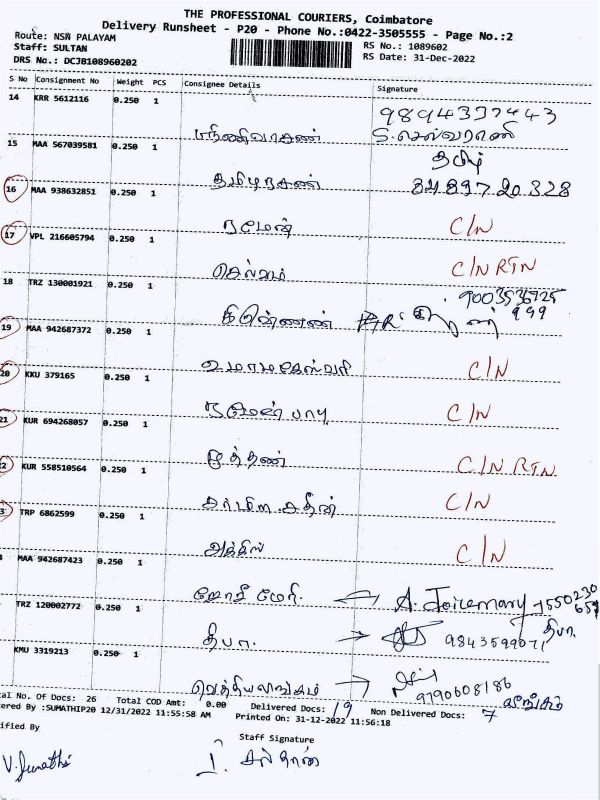 THE PROFESSIONAL COURIERS, Coimbatore
Delivery Runsheet - P20 - Phone No.:0422-3505555 - Page No.:2
Route: NSN PALAYAM
RS No.: 1089602
Staff: SULTAN
RS Date: 31-Dec-2022
DRS No.: DCJB108960202
S No Consignment No Weight PCS Consignee Details Signature
14 KRR 5612116 0.250 1
9894337443
S.செல்வராணி
15 MAA 567039581 0.250 1
தமிழ்
16 MAA 938632851 0.250 1 தமிழரசண் 84897 20328
17 VPL 216605794 0.250 1 ரமேஷ் C/N
18 TRZ 130001921 0.250 1 செல்வம் C/N RTN
9003536725
999
19 MAA 942687372 0.250 1
உமாமகேஸ்வரி C/N
20 KKU 379165 0.250 1
ரமேஷ் பாபு C/N
21 KUR 694268057 0.250 1
முத்தண் C/N RTN
22 KUR 558510564 0.250 1
C/N
TRP 6862599 0.250 1
C/N
MAA 942687423 0.250 1
ஜோதி மேரி. A. Joicemary 7550230
657
TRZ 120002772 0.250 1
தீபா. 9843599071 தீபா.
KMU 3319213 0.250 1
9790608186
No. Of Docs: 26 Total COD Amt: 0.00 Delivered Docs: 19 Non Delivered Docs: 7
By :SUMATHIP20 12/31/2022 11:55:58 AM Printed On: 31-12-2022 11:56:18
By Staff Signature
V.Sumathi சுல்தான்